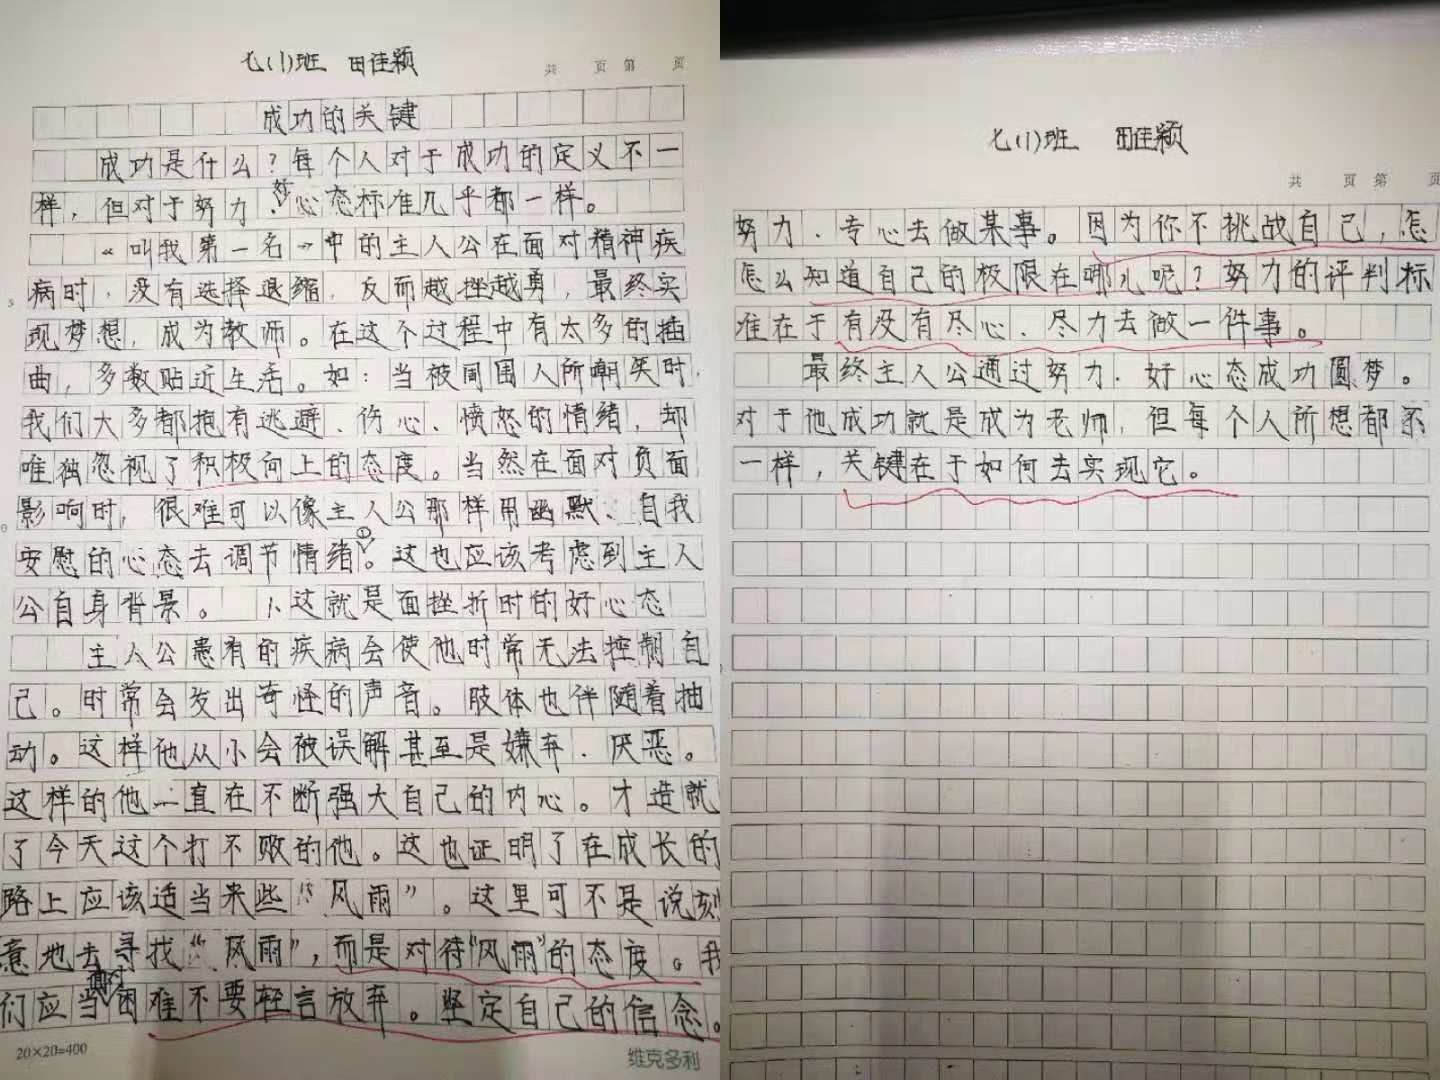 七(1)班 田佳颖
共 页 第 页
成功的关键
成功是什么?每个人对于成功的定义不一
样,但对于努力、好心态标准几乎都一样。
《叫我第一名》中的主人公在面对精神疾
病时,没有选择退缩,反而越挫越勇,最终实
现梦想,成为教师。在这个过程中有太多的插
曲,多数贴近生活。如:当被周围人所嘲笑时,
我们大多都抱有逃避、伤心、愤怒的情绪,却
唯独忽视了积极向上的态度。当然在面对负面
影响时,很难可以像主人公那样用幽默、自我
安慰的心态去调节情绪①。这也应该考虑到主人
公自身背景。 1.这就是面挫折时的好心态
主人公患有的疾病会使他时常无法控制自
己。时常会发出奇怪的声音。肢体也伴随着抽
动。这样他从小会被误解甚至是嫌弃、厌恶。
这样的他一直在不断强大自己的内心。才造就
了今天这个打不败的他。这也证明了在成长的
路上应该适当来些“风雨”。这里可不是说刻
意地去寻找“风雨”,而是对待“风雨”的态度。我
们应当面对困难不要轻言放弃。坚定自己的信念。
20×20=400
维克多利
七(1)班 田佳颖
共 页 第 页
努力、专心去做某事。因为你不挑战自己,怎
怎么知道自己的极限在哪儿呢?努力的评判标
准在于有没有尽心、尽力去做一件事。
最终主人公通过努力、好心态成功圆梦。
对于他成功就是成为老师,但每个人所想都不
一样,关键在于如何去实现它。